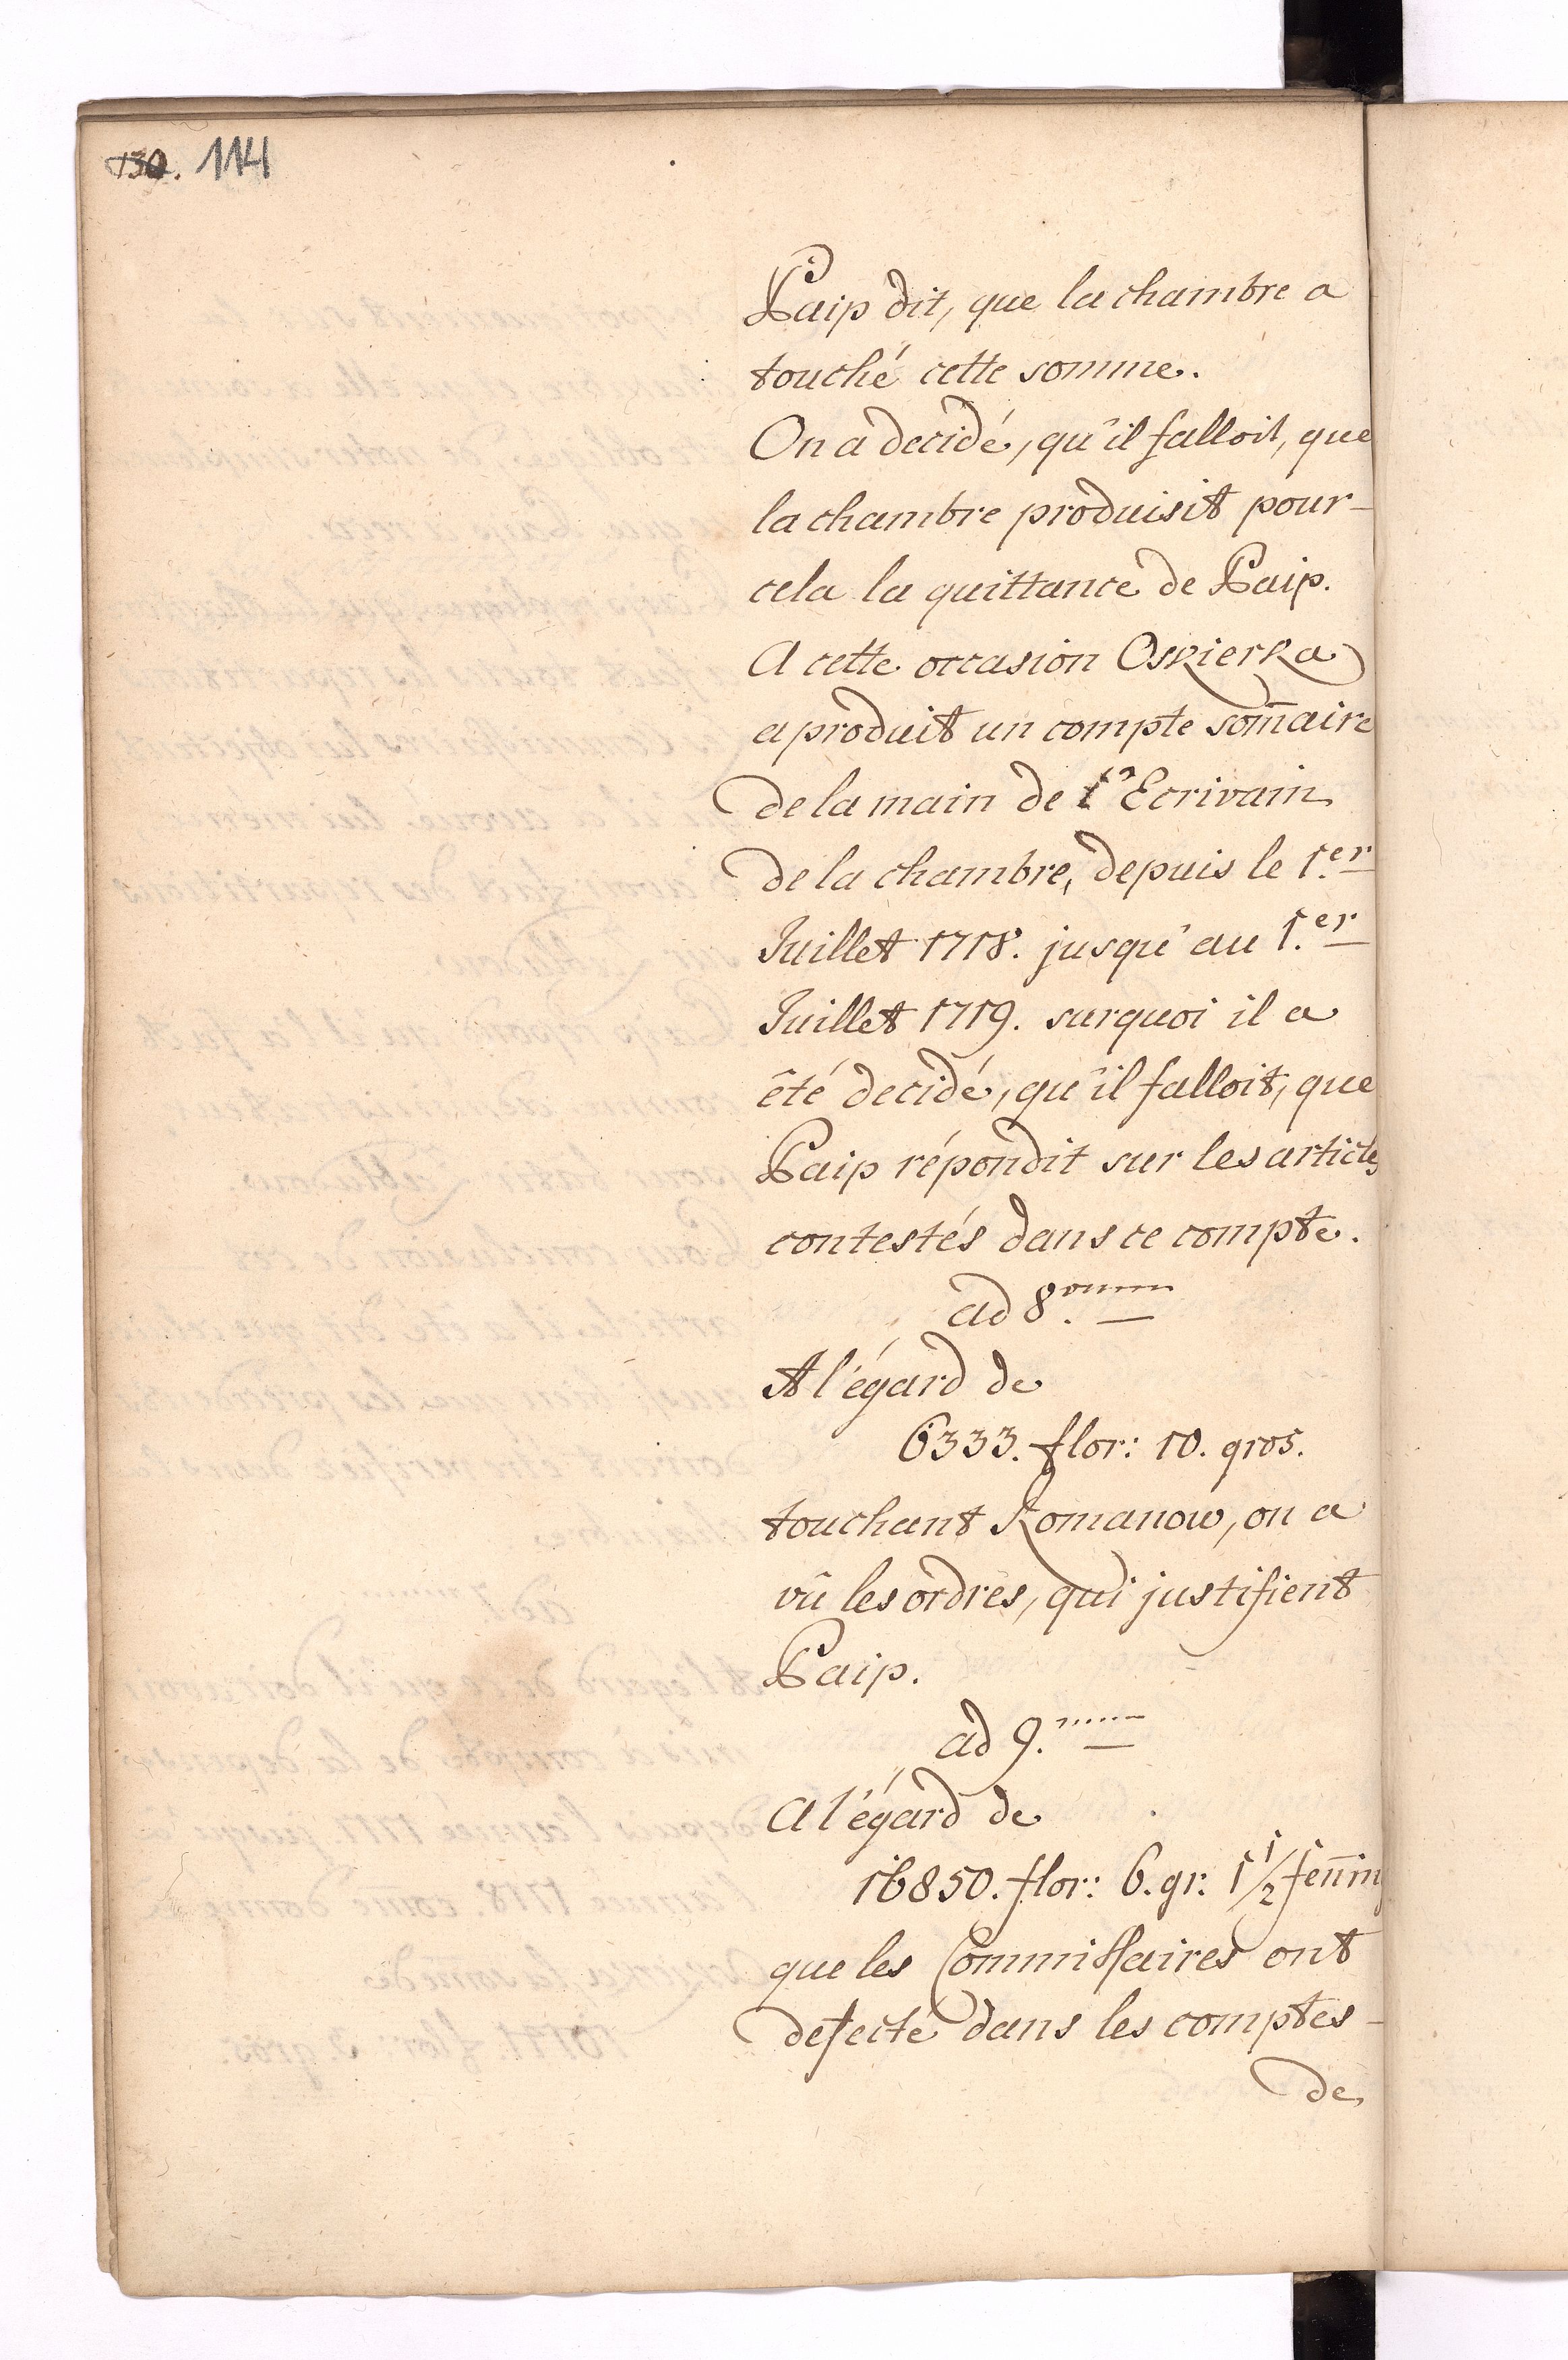 130. 114
Paip dit, que la chambre a
touché cette somme.
On a decidé, qu'il falloit, que
la chambre produisit pour-
cela la quittance de Paip.
A cette occasion Oskierka
a produit un compte som̄aire
de la main de l'Ecrivain
de la chambre, depuis le 1.er
Juillet 1718. jusqu'au 1.er
Juillet 1719. surquoi il a
êté decidé, qu'il falloit, que
Paip répondit sur les articles
contestés dans ce compte.
ad 8.vum
A l'égard de
6333. flor: 10. gros.
touchant Romanow, on a
vû les ordres, qui justifient
Paip.
ad 9.num
A l'égard de
16850. flor: 6. gr: 1 1/2 fen̄in
que les Commissaires ont
defecté dans les comptes-
de